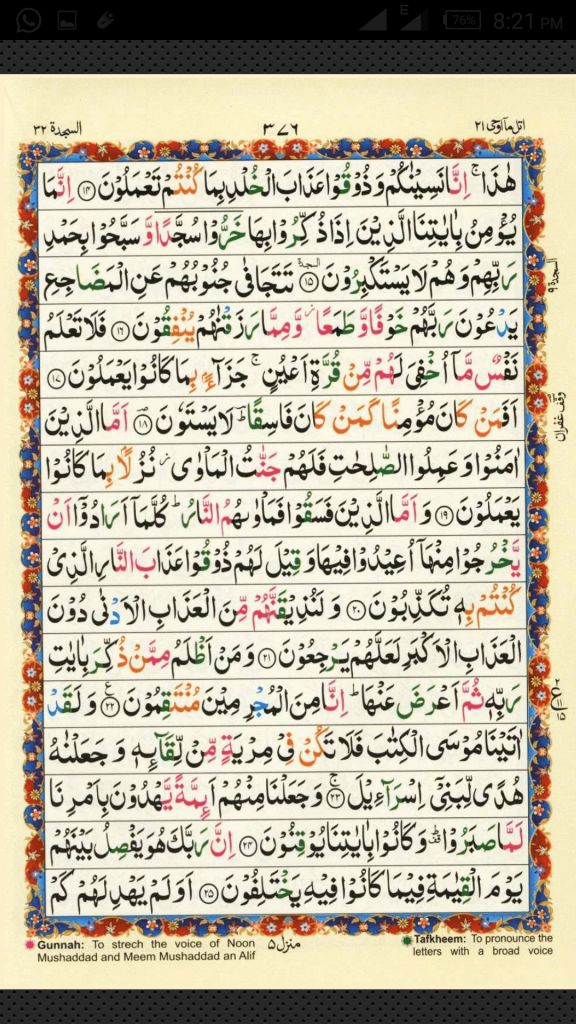 E 76% 8:21 PM
السجدة ٣٢ ٣٧٦ اتل مآ اوحی ٢١
هٰذَا ۚ اِنَّا نَسِيْنٰكُمْ وَذُوْقُوْا عَذَابَ الْخُلْدِ بِمَا كُنْتُمْ تَعْمَلُوْنَ ﴿۱۴﴾ اِنَّمَا
يُؤْمِنُ بِاٰيٰتِنَا الَّذِيْنَ اِذَا ذُكِّرُوْا بِهَا خَرُّوْا سُجَّدًا وَّ سَبَّحُوْا بِحَمْدِ
رَبِّهِمْ وَهُمْ لَا يَسْتَكْبِرُوْنَ ﴿۱۵﴾ تَتَجَافٰى جُنُوْبُهُمْ عَنِ الْمَضَاجِعِ
السجدة ٩
يَدْعُوْنَ رَبَّهُمْ خَوْفًا وَّ طَمَعًا ۫ وَّ مِمَّا رَزَقْنٰهُمْ يُنْفِقُوْنَ ﴿۱۶﴾ فَلَا تَعْلَمُ
نَفْسٌ مَّاۤ اُخْفِيَ لَهُمْ مِّنْ قُرَّةِ اَعْيُنٍ ۚ جَزَآءًۢ بِمَا كَانُوْا يَعْمَلُوْنَ ﴿۱۷﴾
اَفَمَنْ كَانَ مُؤْمِنًا كَمَنْ كَانَ فَاسِقًا ؕ لَا يَسْتَوٗنَ ﴿۱۸﴾ اَمَّا الَّذِيْنَ
وقف غفران
اٰمَنُوْا وَ عَمِلُوا الصّٰلِحٰتِ فَلَهُمْ جَنّٰتُ الْمَاْوٰى ۫ نُزُلًۢا بِمَا كَانُوْا
يَعْمَلُوْنَ ﴿۱۹﴾ وَ اَمَّا الَّذِيْنَ فَسَقُوْا فَمَاْوٰىهُمُ النَّارُ ؕ كُلَّمَاۤ اَرَادُوْۤا اَنْ
يَّخْرُجُوْا مِنْهَاۤ اُعِيْدُوْا فِيْهَا وَ قِيْلَ لَهُمْ ذُوْقُوْا عَذَابَ النَّارِ الَّذِيْ
كُنْتُمْ بِهٖ تُكَذِّبُوْنَ ﴿۲۰﴾ وَ لَنُذِيْقَنَّهُمْ مِّنَ الْعَذَابِ الْاَدْنٰى دُوْنَ
الْعَذَابِ الْاَكْبَرِ لَعَلَّهُمْ يَرْجِعُوْنَ ﴿۲۱﴾ وَ مَنْ اَظْلَمُ مِمَّنْ ذُكِّرَ بِاٰيٰتِ
رَبِّهٖ ثُمَّ اَعْرَضَ عَنْهَا ؕ اِنَّا مِنَ الْمُجْرِمِيْنَ مُنْتَقِمُوْنَ ﴿۲۲﴾ وَ لَقَدْ
اٰتَيْنَا مُوْسَى الْكِتٰبَ فَلَا تَكُنْ فِيْ مِرْيَةٍ مِّنْ لِّقَآئِهٖ وَ جَعَلْنٰهُ
هُدًى لِّبَنِيْۤ اِسْرَآءِيْلَ ﴿۲۳﴾ ۚ وَ جَعَلْنَا مِنْهُمْ اَئِمَّةً يَّهْدُوْنَ بِاَمْرِنَا
لَمَّا صَبَرُوْا ۟ؕ وَ كَانُوْا بِاٰيٰتِنَا يُوْقِنُوْنَ ﴿۲۴﴾ اِنَّ رَبَّكَ هُوَ يَفْصِلُ بَيْنَهُمْ
يَوْمَ الْقِيٰمَةِ فِيْمَا كَانُوْا فِيْهِ يَخْتَلِفُوْنَ ﴿۲۵﴾ اَوَ لَمْ يَهْدِ لَهُمْ كَمْ
Gunnah: To strech the voice of Noon
Mushaddad and Meem Mushaddad an Alif
منزل ٥
Tafkheem: To pronounce the
letters with a broad voice